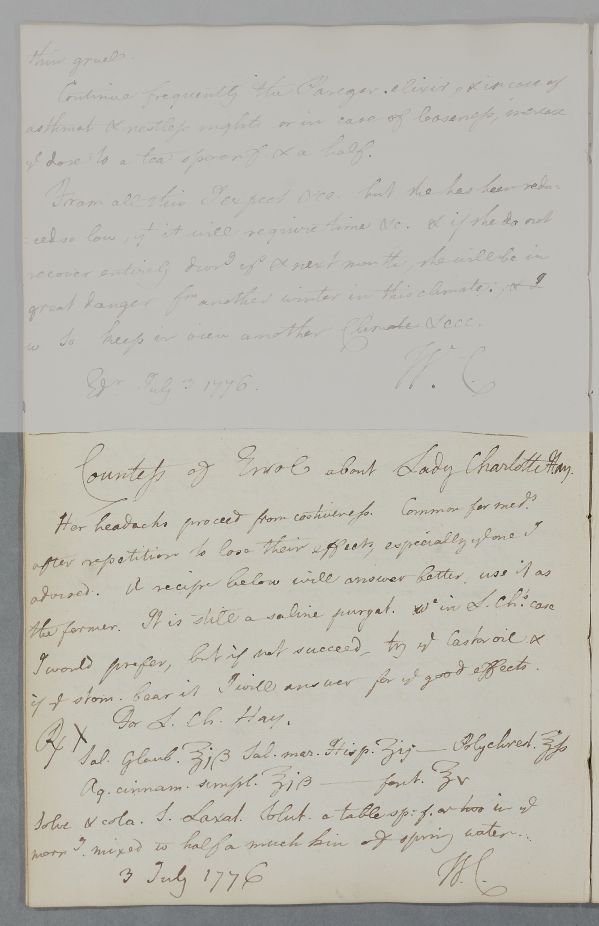 thin gruel.
Continue frequently the Paregor. elixir, & in case of
asthmat & restless nights or in case of looseness, increase
yͤ dose to a tea spoonf & a half.
From all this I expect &cc. but she has been redu-
=ced so low, yͭ it will require time &c. & if she do not
recover entirely & next month, she will be in
great danger fm another winter in this climate; & I
w so keep in view another Climate &ccc.
Edr July 3 1776. Wm. C.
Countess of Errol about Lady Charlotte Hay.
Her headachs proceed from costiveness. Common for meds
after repetition to lose their effects, especially yͤ one I
advised. Yͤ recipe below will answer better, use it as
the former. It is still a saline purgat. wc in L. Ch's case
I would prefer, but if not succeed, try yͤ Castor oil &
if yͤ stom. bear it I will answer for yͤ good effects.
For L. Ch. Hay.
℞ Sal. Glaub. ℥jß Sal. mar. Hisp. ʒij — Polychrest. ℥ss
Aq. cinnam. simpl. ℥jß — font. ℥v
Solve & cola. S. Laxat. Solut. a table sp: f. or two in yͤ
morng. mixed w half a much kin of spring water.
3 July 1776 W.C.